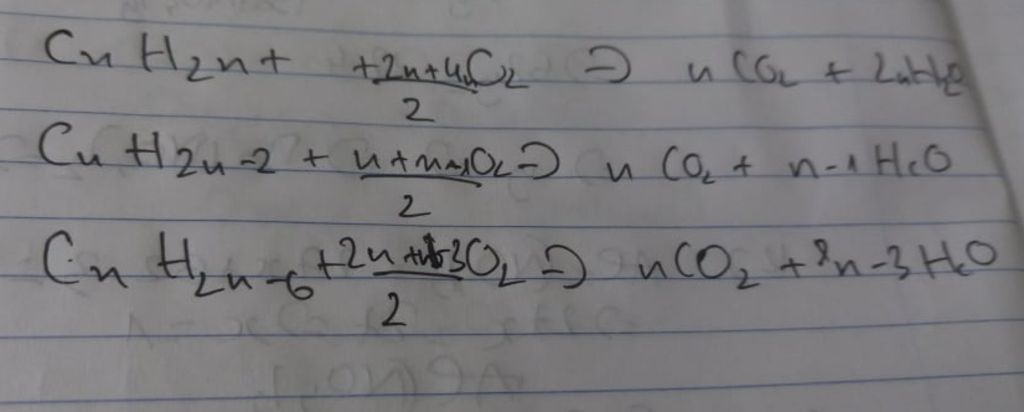 Cn H2n + +2n+4n/2 O2 => n CO2 + 2nH2O
Cn H2n-2 + n+n-1/2 O2 => n CO2 + n-1 H2O
Cn H2n-6 + 2n+n-3/2 O2 => nCO2 + n-3 H2O